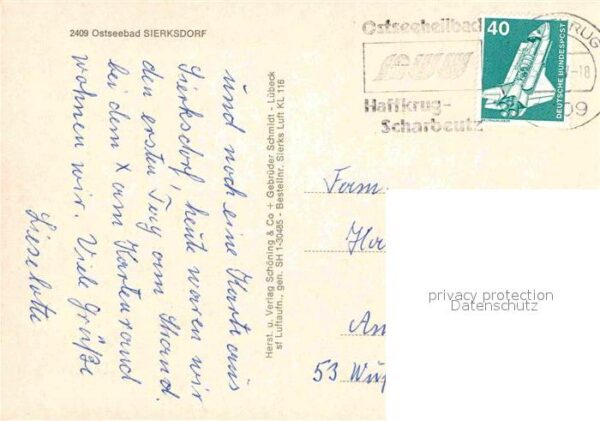 2409 Ostseebad SIERKSDORF
und noch eine Karte aus
Sierksdorf, heute waren wir
den ersten Tag am Strand.
bei dem X am Kartenrand
wohnen wir. Viele Grüße
Lieselotte
Herst. u. Verlag Schöning & Co + Gebrüder Schmidt - Lübeck
sf Luftaufn., gen. SH 1-30485 - Bestellnr. Sierks Luft KL 116
Ostseeheilbad
Haffkrug-
Scharbeutz
40
DEUTSCHE BUNDESPOST
KRUG
-18
09
Fam.
Ha
Am
53 Wup
privacy protection
Datenschutz